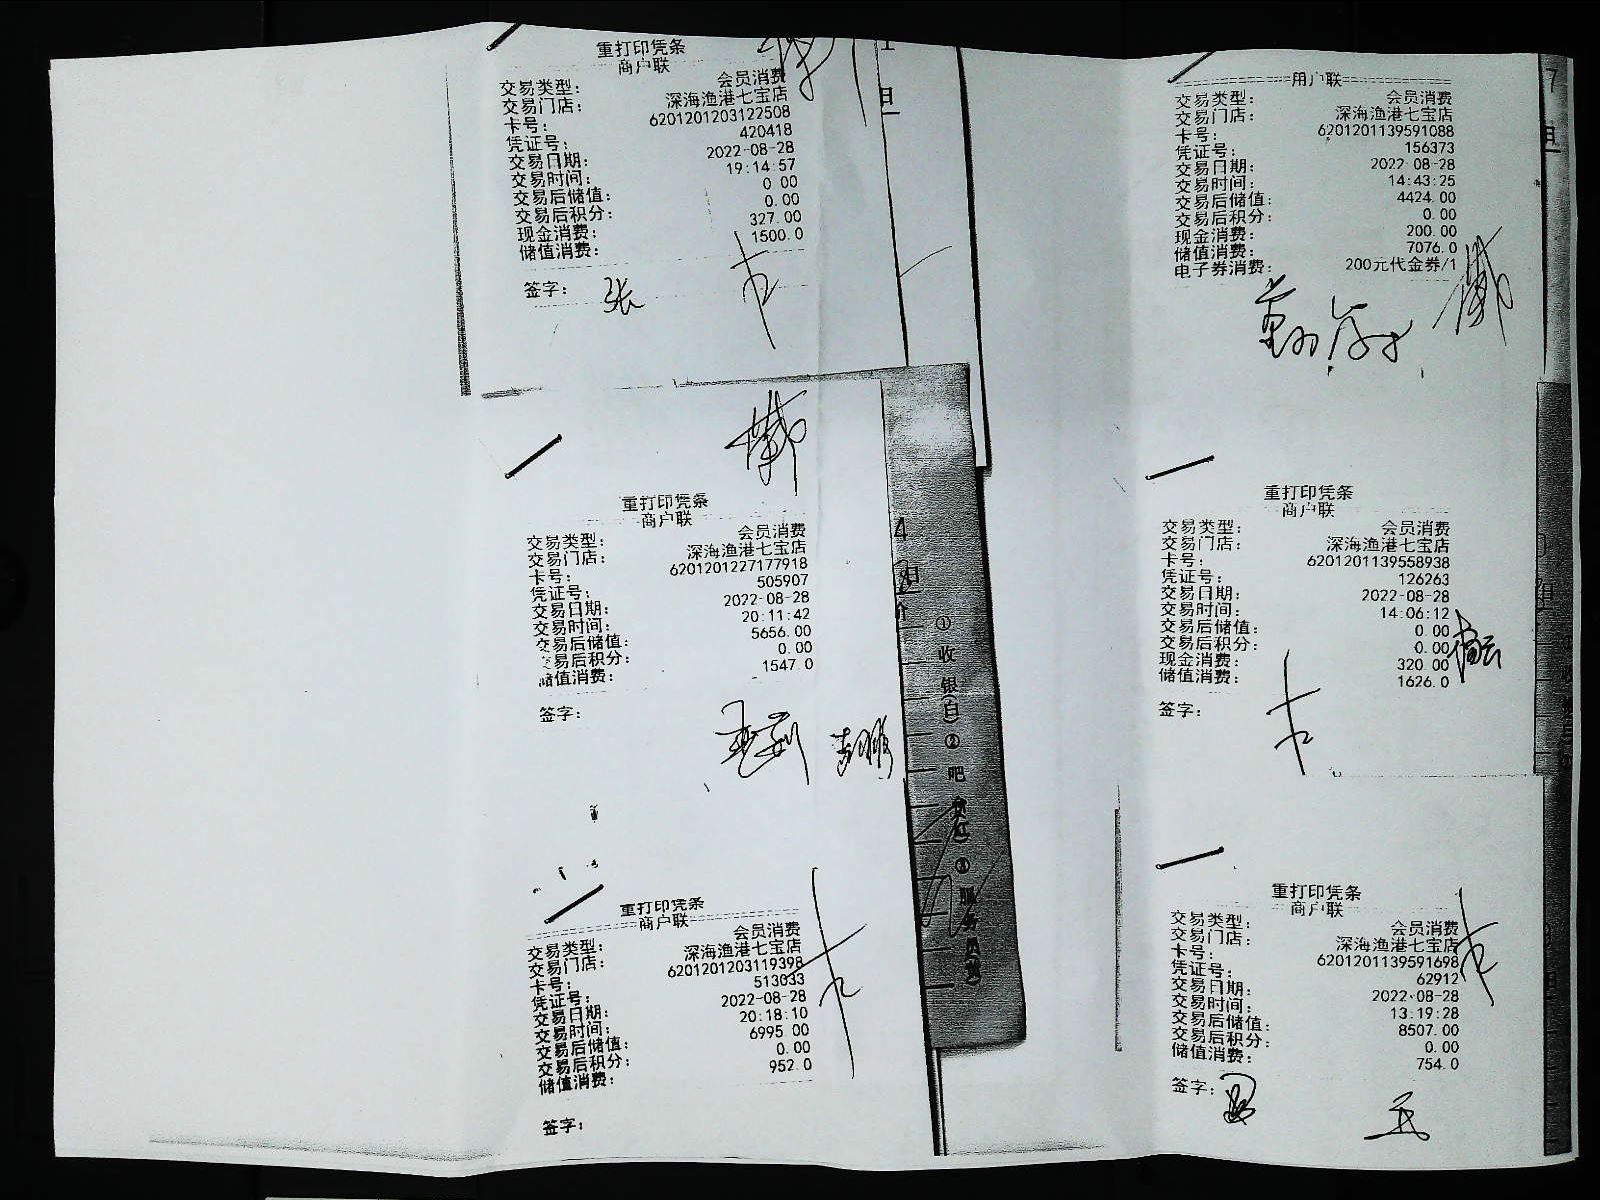 重打印凭条
商户联
交易类型: 会员消费
交易门店: 深海渔港七宝店
卡号: 6201201203122508
凭证号: 420418
交易日期: 2022-08-28
交易时间: 19:14:57
交易后储值: 0.00
交易后积分: 0.00
现金消费: 327.00
储值消费: 1500.0
签字: 张
重打印凭条
商户联
交易类型: 会员消费
交易门店: 深海渔港七宝店
卡号: 6201201227177918
凭证号: 505907
交易日期: 2022-08-28
交易时间: 20:11:42
交易后储值: 5656.00
交易后积分: 0.00
储值消费: 1547.0
签字:
重打印凭条
商户联
交易类型: 会员消费
交易门店: 深海渔港七宝店
卡号: 6201201203119398
凭证号: 513033
交易日期: 2022-08-28
交易时间: 20:18:10
交易后储值: 6995.00
交易后积分: 0.00
储值消费: 952.0
签字:
4
①收银(白)②吧
用户联
交易类型: 会员消费
交易门店: 深海渔港七宝店
卡号: 6201201139591088
凭证号: 156373
交易日期: 2022-08-28
交易时间: 14:43:25
交易后储值: 4424.00
交易后积分: 0.00
现金消费: 200.00
储值消费: 7076.0
电子券消费: 200元代金券/1
重打印凭条
商户联
交易类型: 会员消费
交易门店: 深海渔港七宝店
卡号: 6201201139558938
凭证号: 126263
交易日期: 2022-08-28
交易时间: 14:06:12
交易后储值: 0.00
交易后积分: 0.00
现金消费: 320.00
储值消费: 1626.0
签字:
重打印凭条
商户联
交易类型: 会员消费
交易门店: 深海渔港七宝店
卡号: 6201201139591698
凭证号: 62912
交易日期: 2022-08-28
交易时间: 13:19:28
交易后储值: 8507.00
交易后积分: 0.00
储值消费: 754.0
签字: